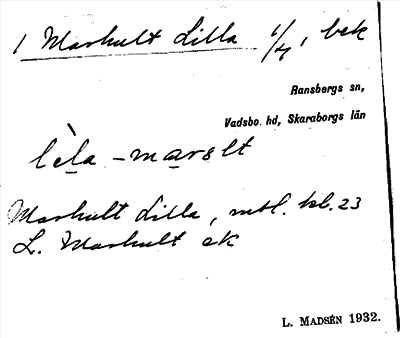 1 Marhult Lilla 1/4, bek
Ransbergs sn,
Vadsbo. hd, Skaraborgs län
lèla - marslt
Marhult Lilla, mtl. kb. 23
L. Marhult ek
L. MADSÉN 1932.